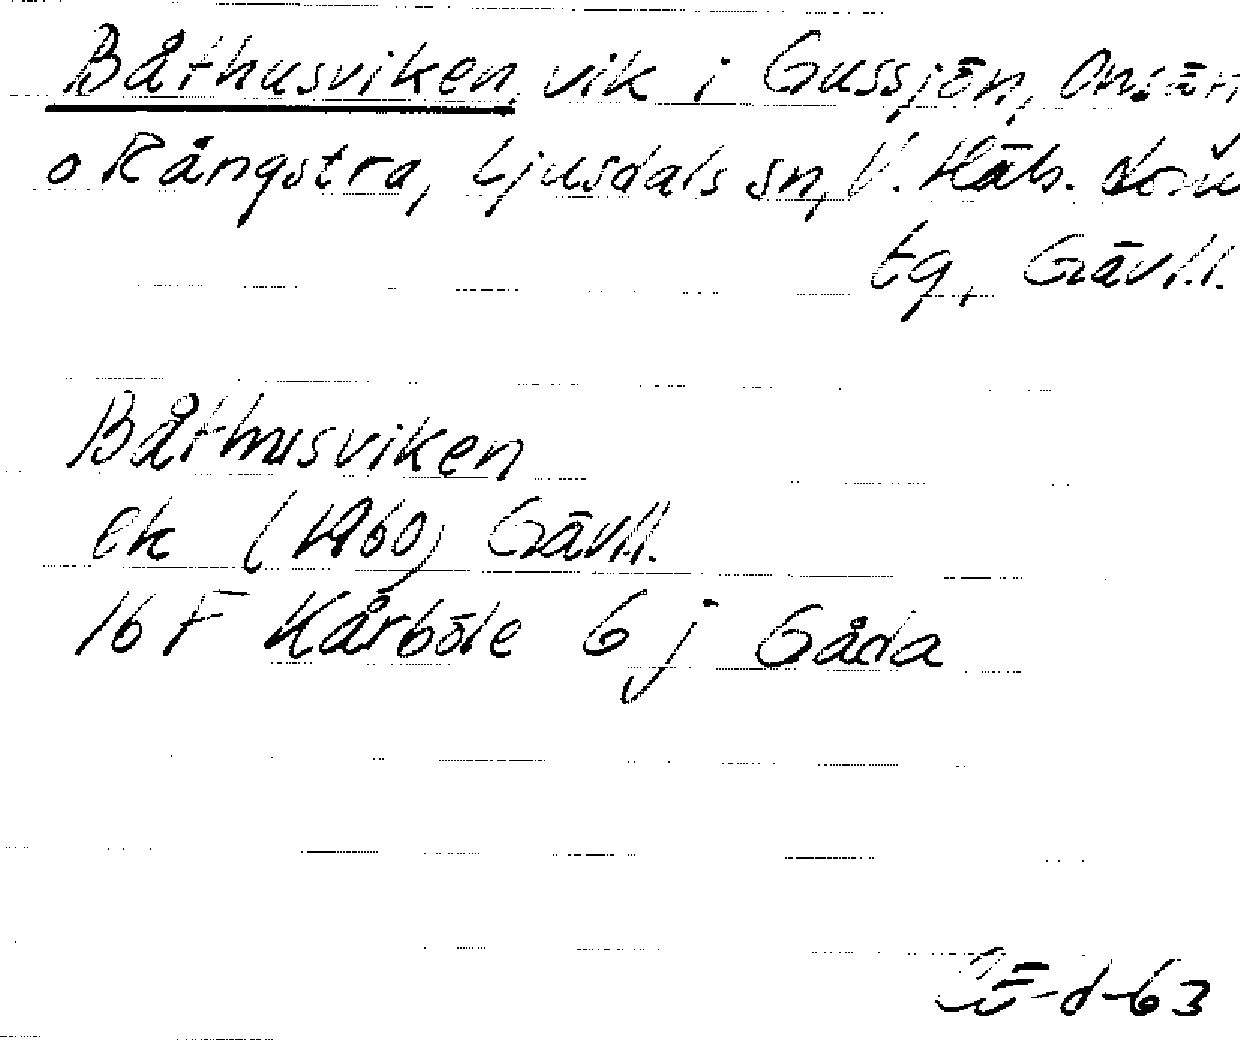 Båthusviken, vik i Gussjön,
o Rångstra, Ljusdals sn, V. Häls.
tg, Gävl.l.
Båthusviken
ek (1960) Gävl.l.
16 F Kårböle 6 j Gåda